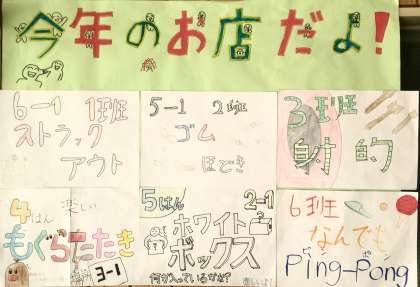 今年のお店だよ!
6-1 1班
ストラック
アウト
5-1 2班
ゴム
ほどき
3班
射的
4はん 楽しい
もぐらたたき
3-1
5はん 2-1
ホワイト
ボックス
何が入っているかな?
6班
なんでも
ピン ポン
Ping-Pong